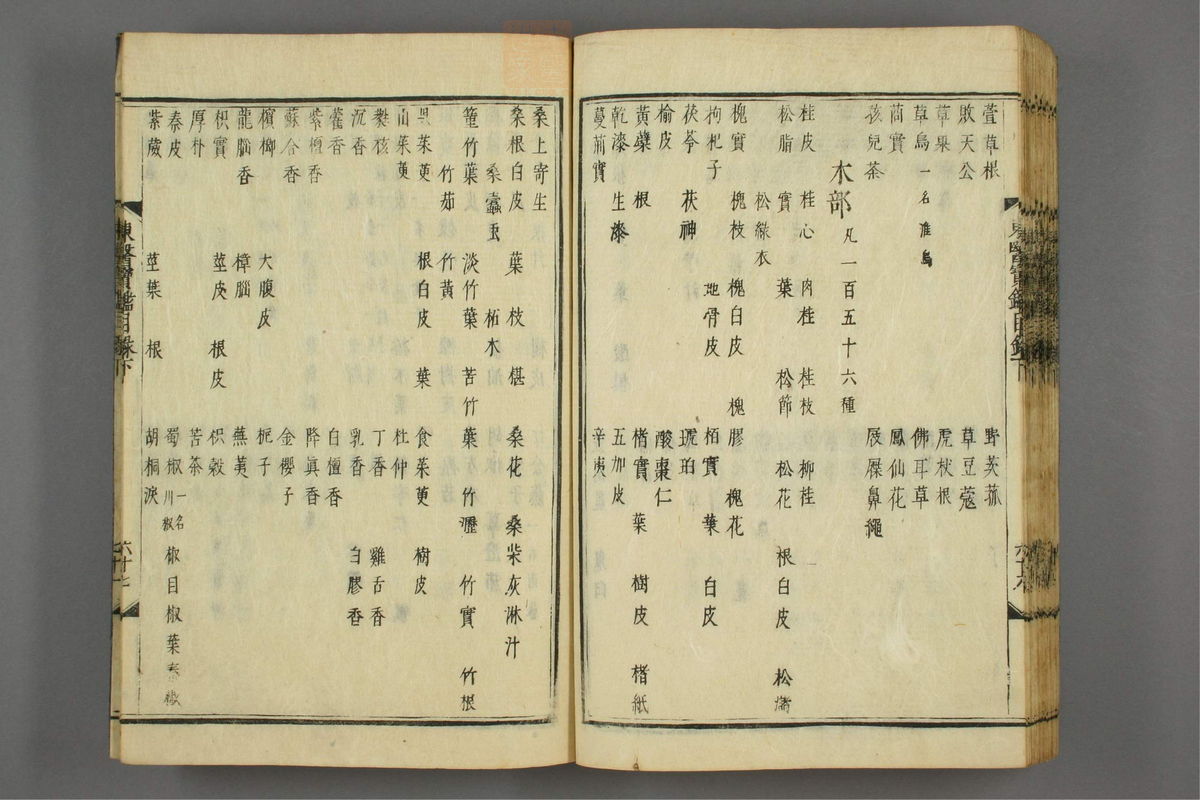 萱草根 野茨菰
敗天公 草豆蔻
草果 虎杖根
草烏一名淮烏 佛耳草
茼實 鳳仙花
孩兒茶 屐屧鼻繩
木部凡一百五十六種
桂皮 桂心 肉桂 桂枝 柳桂
松脂 實 葉 松節 松花 根白皮 松𣿉
松綠衣
槐實 槐枝 槐白皮 槐膠 槐花
枸杞子 地骨皮 栢實 葉 白皮
茯苓 茯神 琥珀
榆皮 酸棗仁
黃蘗 根 楮實 葉 樹皮 楮紙
乾漆 生漆 五加皮
蔓荊實 辛夷
東醫寶鑑目錄下 六十六
桑上寄生
桑根白皮 葉 枝 椹 桑花 桑柴灰淋汁
桑蠹虫 柘木
篁竹葉 淡竹葉 苦竹葉 竹瀝 竹實 竹根
竹茹 竹黃
吳茱萸 根白皮 葉 食茱萸 樹皮
山茱萸 杜仲
蕤核 丁香 雞舌香
沉香 乳香 白膠香
藿香 白檀香
紫檀香 降眞香
蘇合香 金櫻子
檳榔 大腹皮 梔子
龍腦香 樟腦 蕪荑
枳實 莖皮 根皮 枳殼
厚朴 苦茶
秦皮 蜀椒一名川椒 椒目 椒葉 秦椒
紫葳 莖葉 根 胡桐淚
東醫寶鑑目錄下 六十七